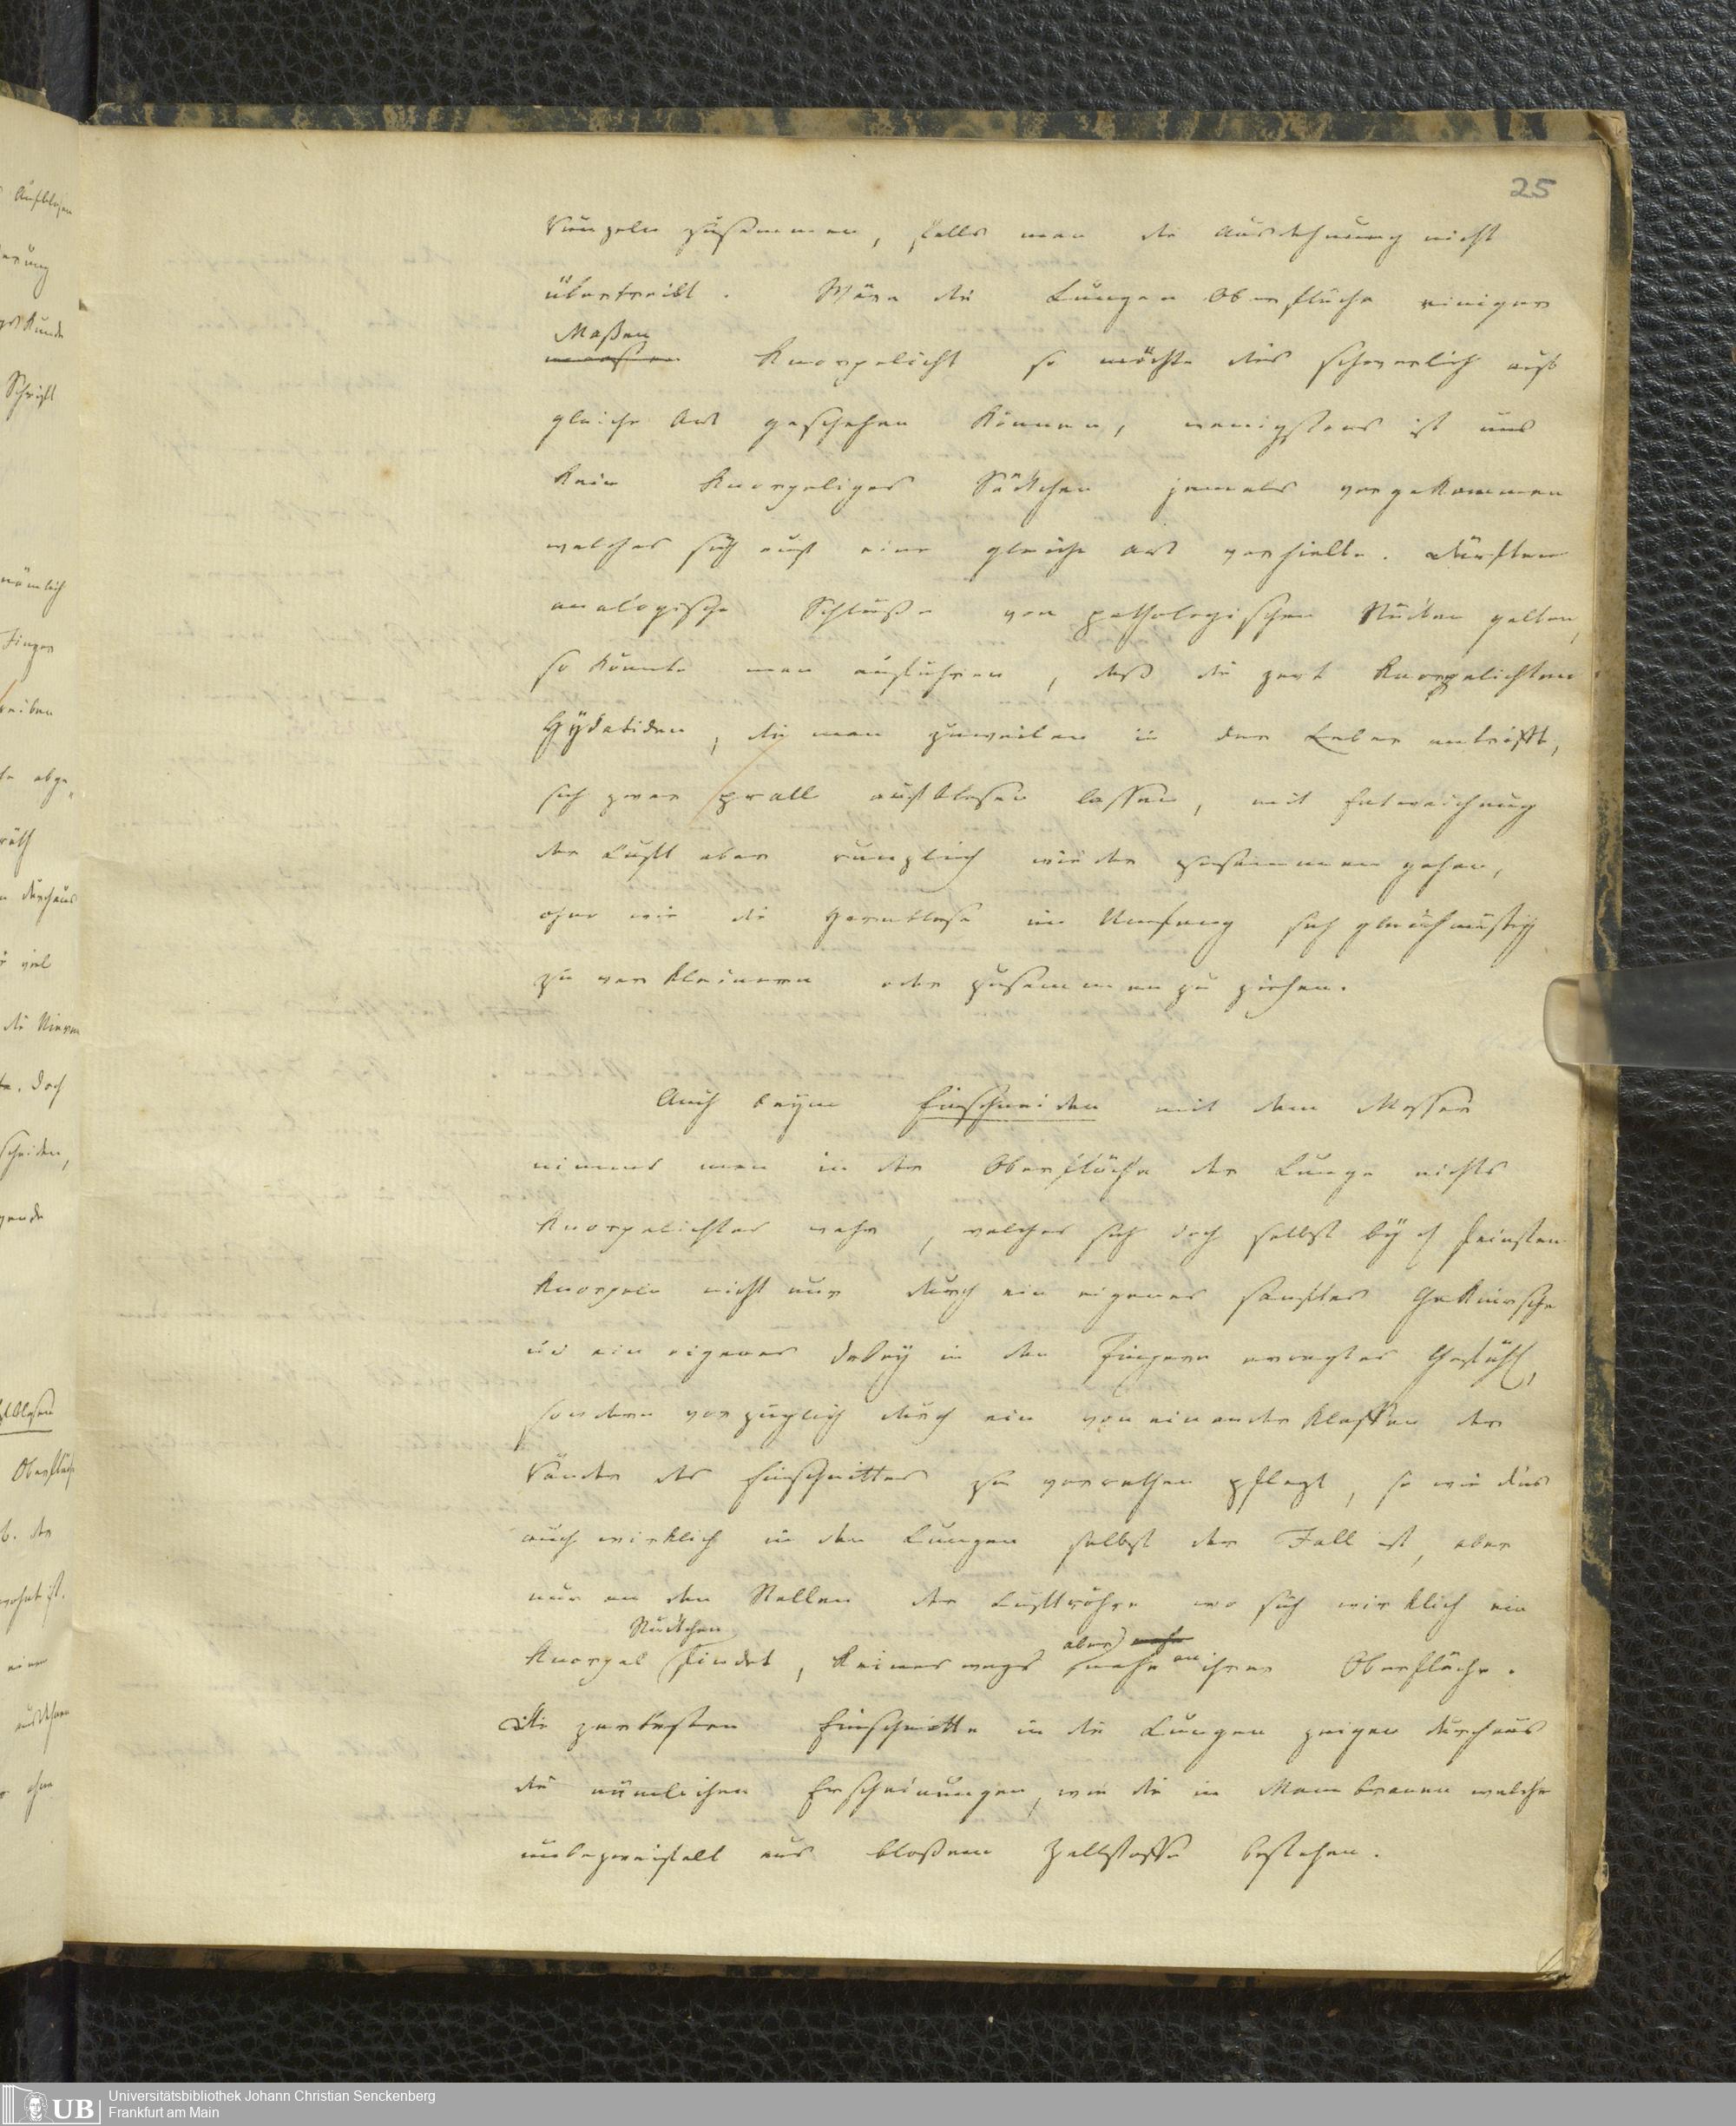 25
Runzeln zusammen, falls man die Ausdehnung nicht
übertreibt. Wäre die Lungen Oberfläche einiger
Maßen
maassen Knorpelicht so möchte dies schwerlich auf
gleiche Art geschehen können, wenigstens ist uns
kein knorpeliges Säckchen jemals vorgekommen
welches sich auf eine gleiche Art verhielte. Dürften
analogische Schlüße von pathologischen Stücken gelten,
so könnte man anführen, daß die zart knorpelichten
Hÿdatiden, die man zuweilen in der Leber antrifft,
sich zwar prall aufblasen lassen, mit Entweichung
der Luft aber runzlich wieder zusammen gehen,
ohne wie die Harnblase im Umfang sich gleichmäßig
zu verkleinern oder zusammen zu ziehen.
Auch beÿm Einschneiden mit dem Messer
nimmt man in der Oberfläche der Lunge nichts
knorpelichtes wahr, welches sich doch selbst beÿ feinsten
Knorpeln nicht nur durch ein eigenes sanftes Geknirsche
und ein eigenes dabeÿ in den Fingern erregtes Gefühl,
sondern vorzüglich durch ein von einander klaffen der
Ränder des Einschnittes zu verrathen pflegt, so wie dies
auch wirklich in den Lungen selbst der Fall ist, aber
nur an den Stellen der Luftröhre wo sich wirklich ein
Stückchen aber
Knorpel findet, keineswegs nahe an ihrer Oberfläche.
Die zartesten Einschnitte in die Lungen zeigen durchaus
die nämlichen Erscheinungen, wie die in Membranen welche
unbezweifelt aus bloßem Zellstoffe bestehen.
UB
Universitätsbibliothek Johann Christian Senckenberg
Frankfurt am Main